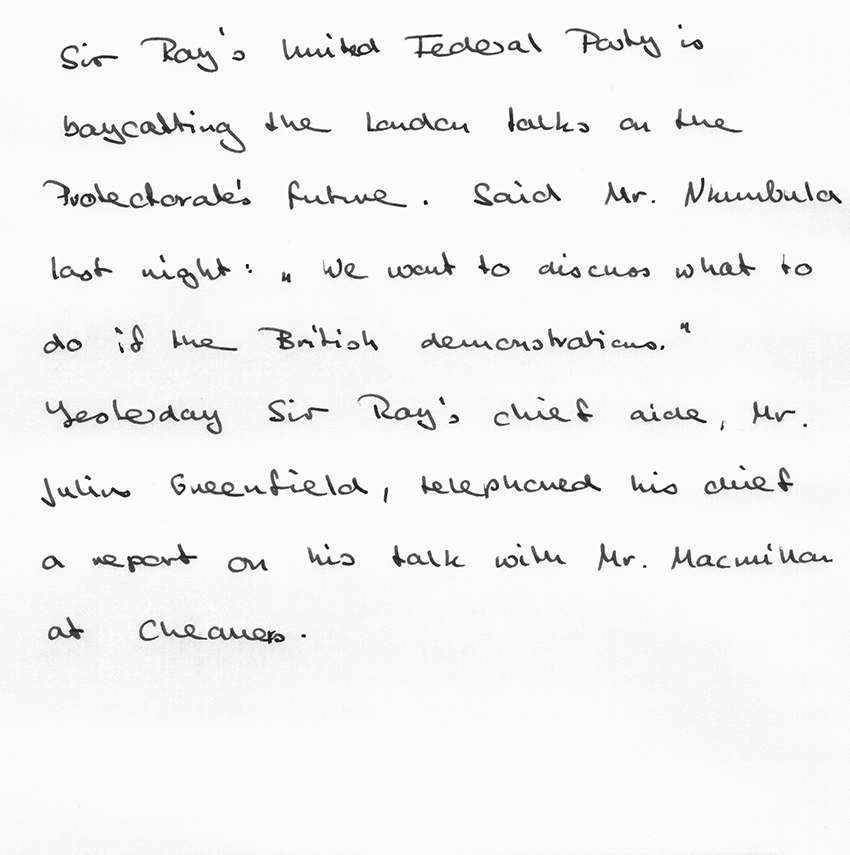 Sir Roy's United Federal Party is
boycotting the London talks on the
Protectorate's future. Said Mr. Nkumbula
last night: „ We want to discuss what to
do if the British demonstrations."
Yesterday Sir Roy's chief aide, Mr.
Julius Greenfield, telephoned his chief
a report on his talk with Mr. Macmillan
at